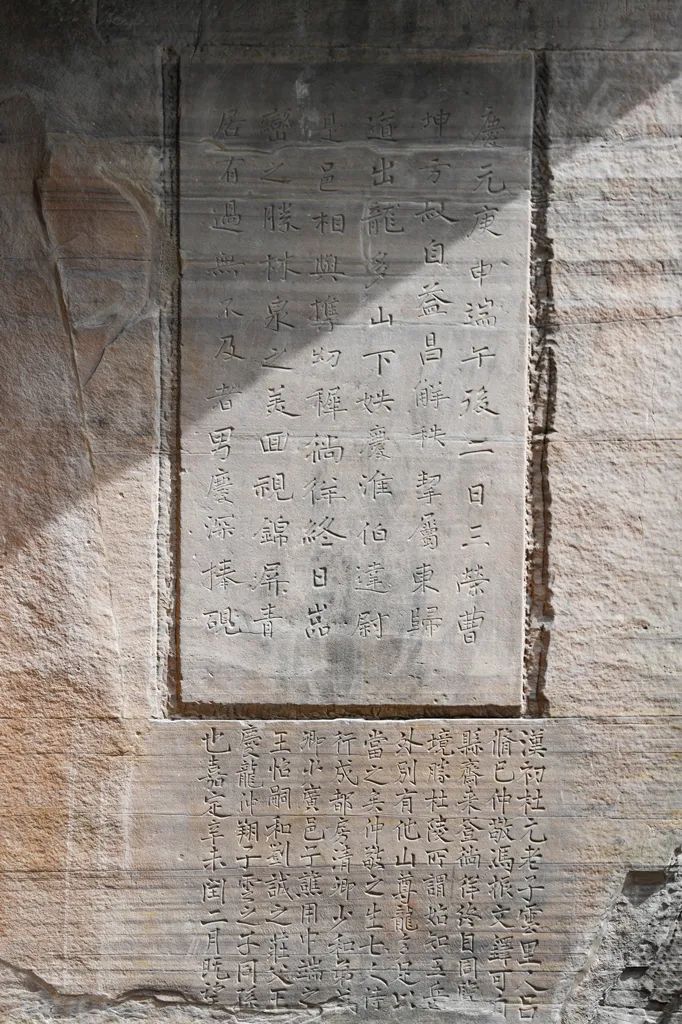 慶元庚申端午後二日三榮曹
坤方叔自益昌解秩挈屬東歸
道出龍多山下姪慶淮伯達尉
是邑相與攜幼穉徜徉終日嵓
巒之勝林泉之美回視錦屏青
居有過無不及者男慶深捧硯
漢初杜元老子雲里人古
脩己仲敬馮振文鐸可
縣齋來登徜徉終日同
境勝杜陵所謂始知五岳
外別有他山尊龍多足以
當之矣仲敬之生七
行成都房清卿少和
卿廣邑子譙用中端
王怡嗣和劉誠之莊父王
慶龍仲翔丁雲之子同
也嘉定辛未閏二月既望